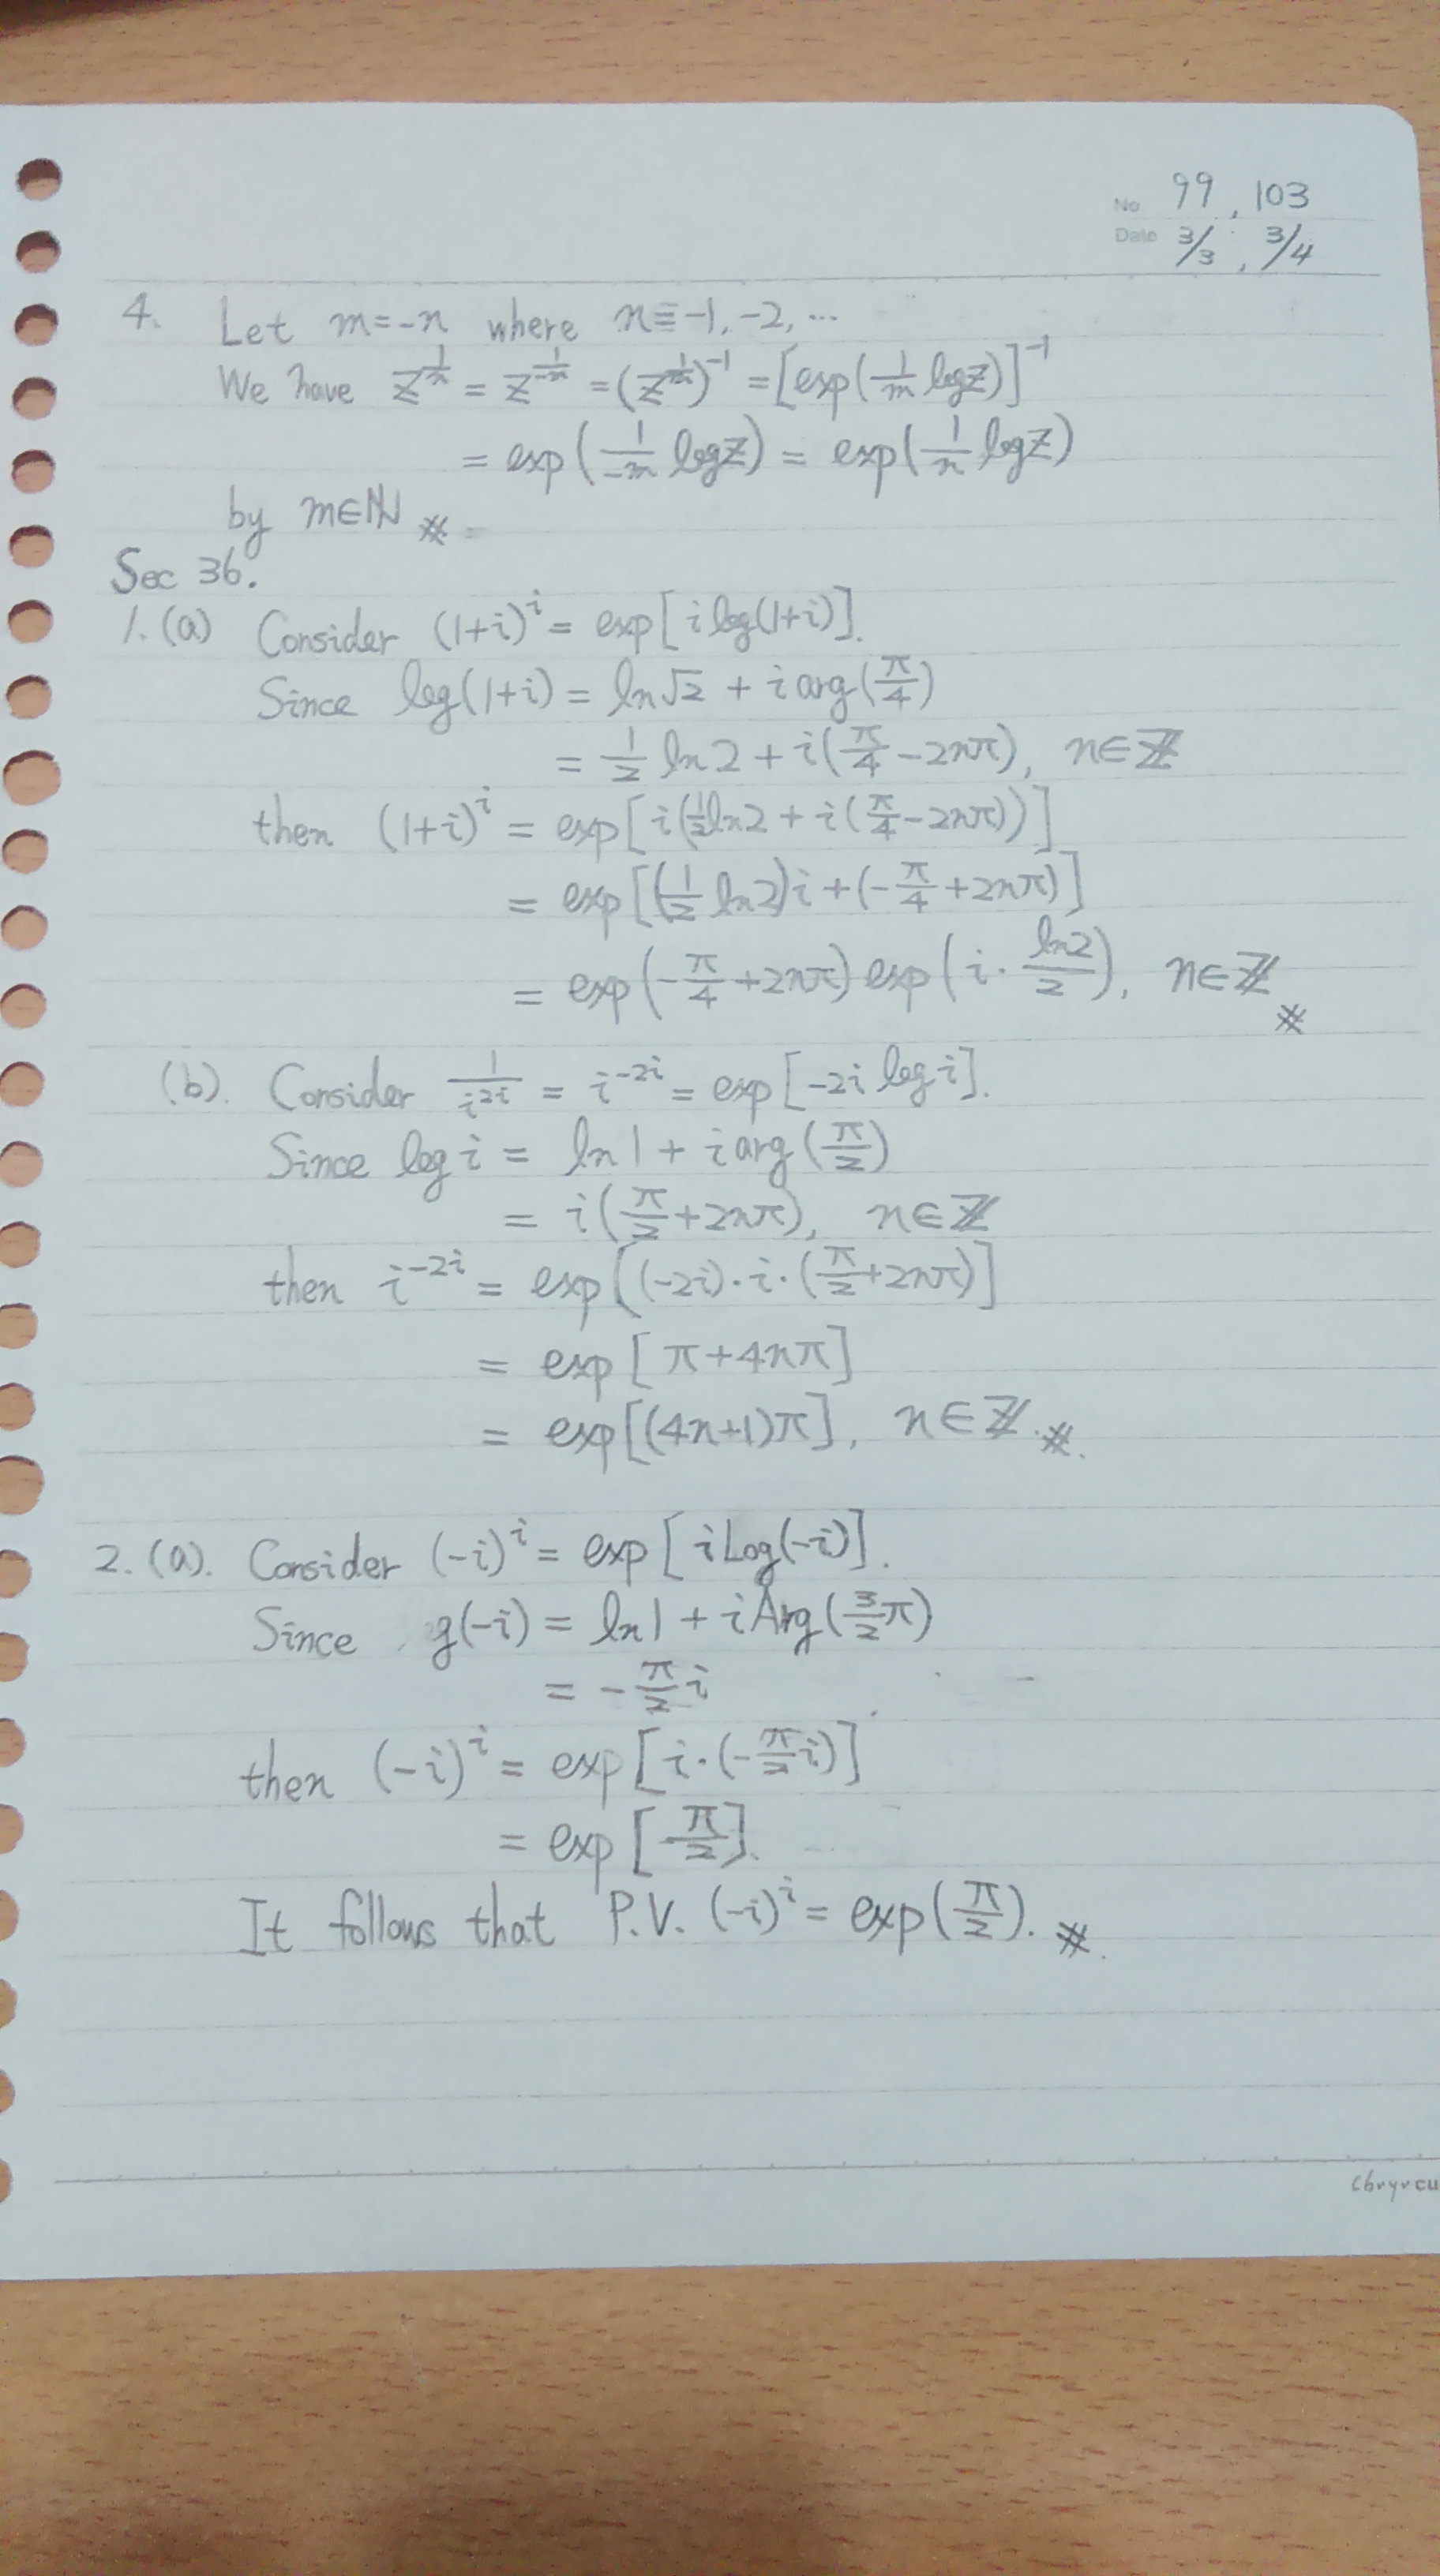 No. 99, 103
Date 3/3, 3/4
4. Let m=-n where n≡-1, -2, ...
We have z^{1/n} = z^{1/-m} = (z^{1/m})^{-1} = [exp(1/m log z)]^{-1}
= exp(1/-m log z) = exp(1/n log z)
by m∈ℕ #
Sec 36.
1. (a) Consider (1+i)^i = exp[i log(1+i)].
Since log(1+i) = ln√2 + i arg(π/4)
= 1/2 ln2 + i(π/4 - 2nπ), n∈ℤ
then (1+i)^i = exp[i(1/2 ln2 + i(π/4 - 2nπ))]
= exp[(1/2 ln2)i + (-π/4 + 2nπ)]
= exp(-π/4 + 2nπ) exp(i · ln2/2), n∈ℤ #
(b). Consider 1/i^{2i} = i^{-2i} = exp[-2i log i].
Since log i = ln1 + i arg(π/2)
= i(π/2 + 2nπ), n∈ℤ
then i^{-2i} = exp[(-2i)·i·(π/2 + 2nπ)]
= exp[π + 4nπ]
= exp[(4n+1)π], n∈ℤ. #.
2. (a). Consider (-i)^i = exp[i Log(-i)].
Since g(-i) = ln1 + i Arg(3/2 π)
= -π/2 i
then (-i)^i = exp[i·(-π/2 i)]
= exp[π/2].
It follows that P.V. (-i)^i = exp(π/2). #.